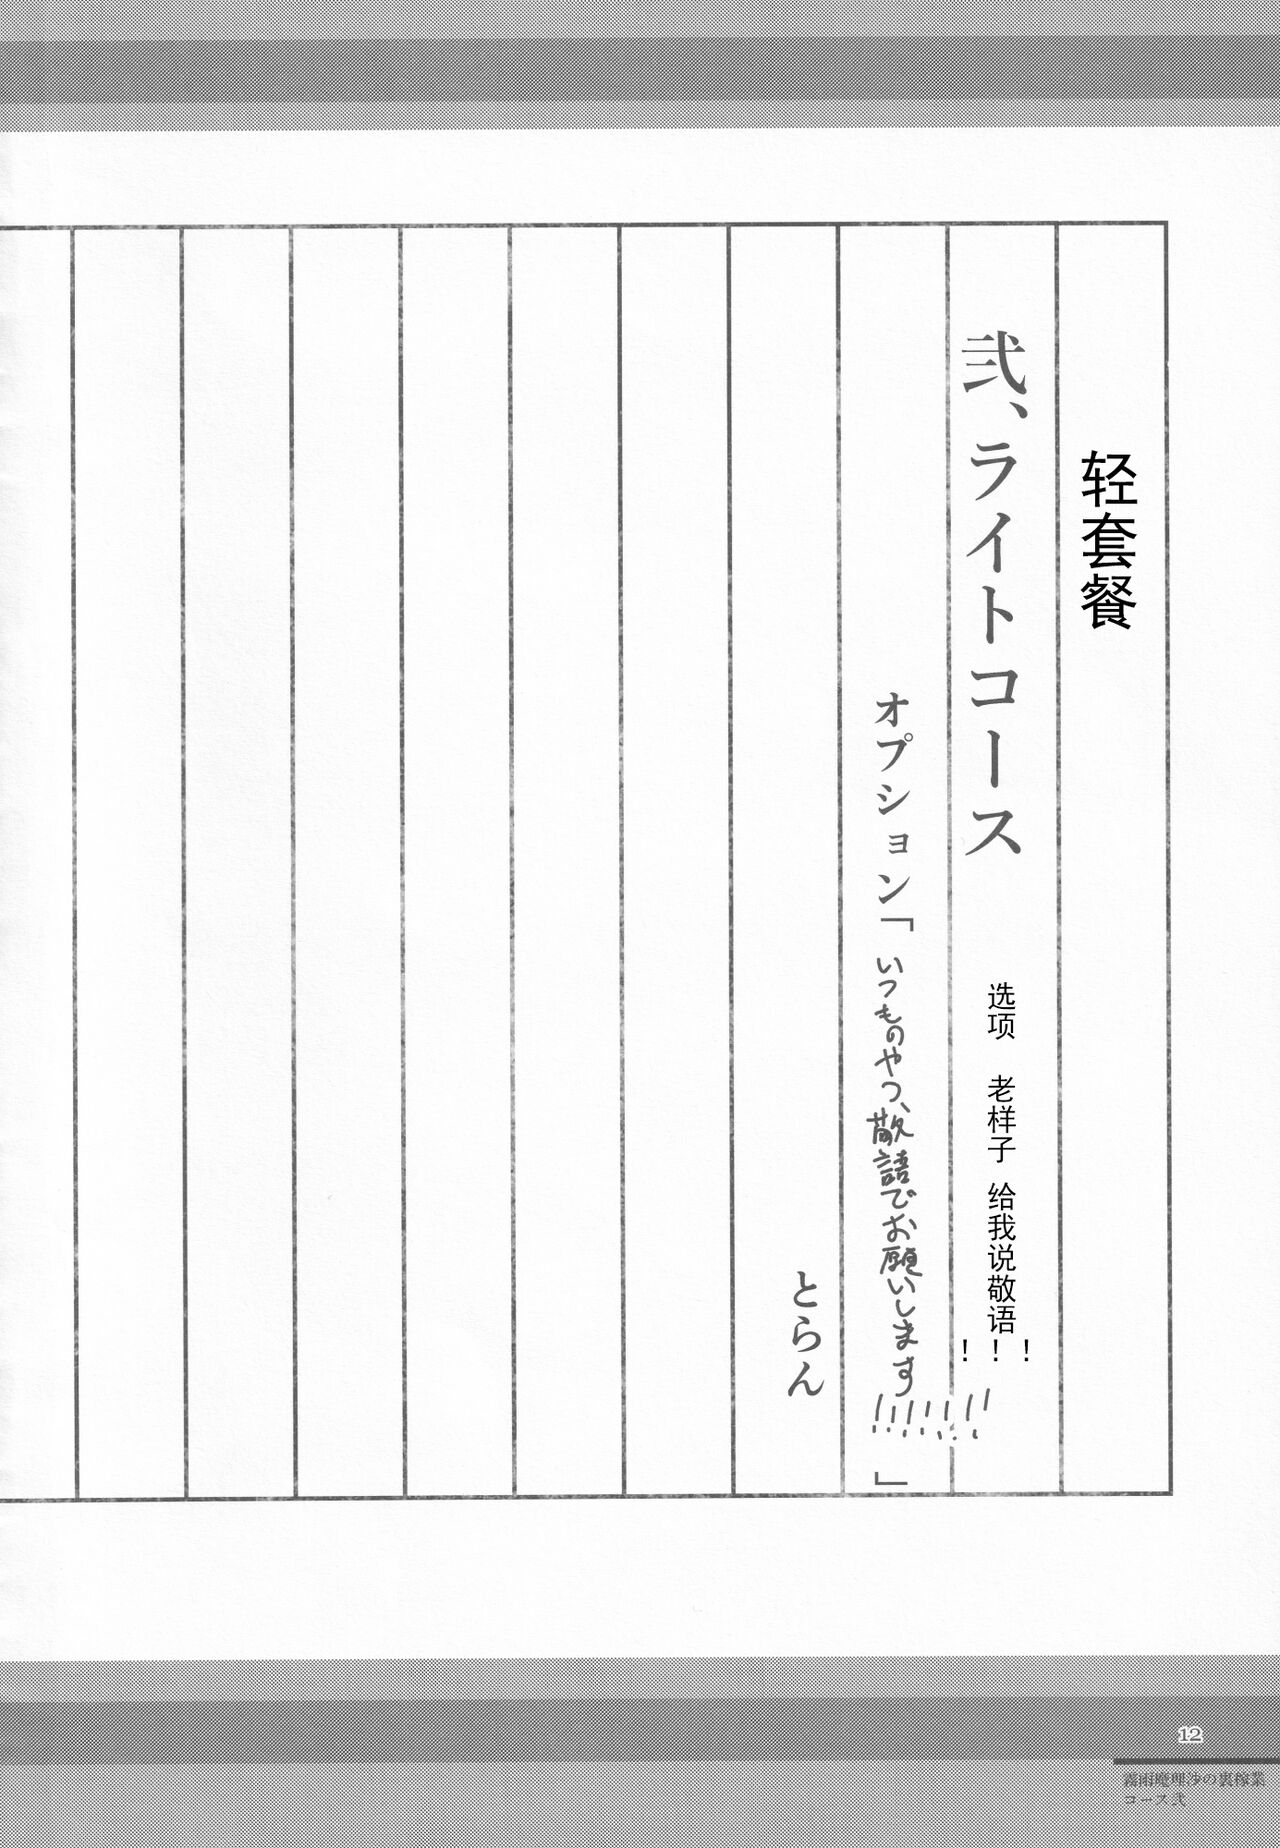 轻套餐
弐、ライトコース
选项 老样子 给我说敬语!!!
オプション「いつものやつ、敬語でお願いします!!!!!!」
とらん
12
霧雨魔理沙の裏稼業
コース弐